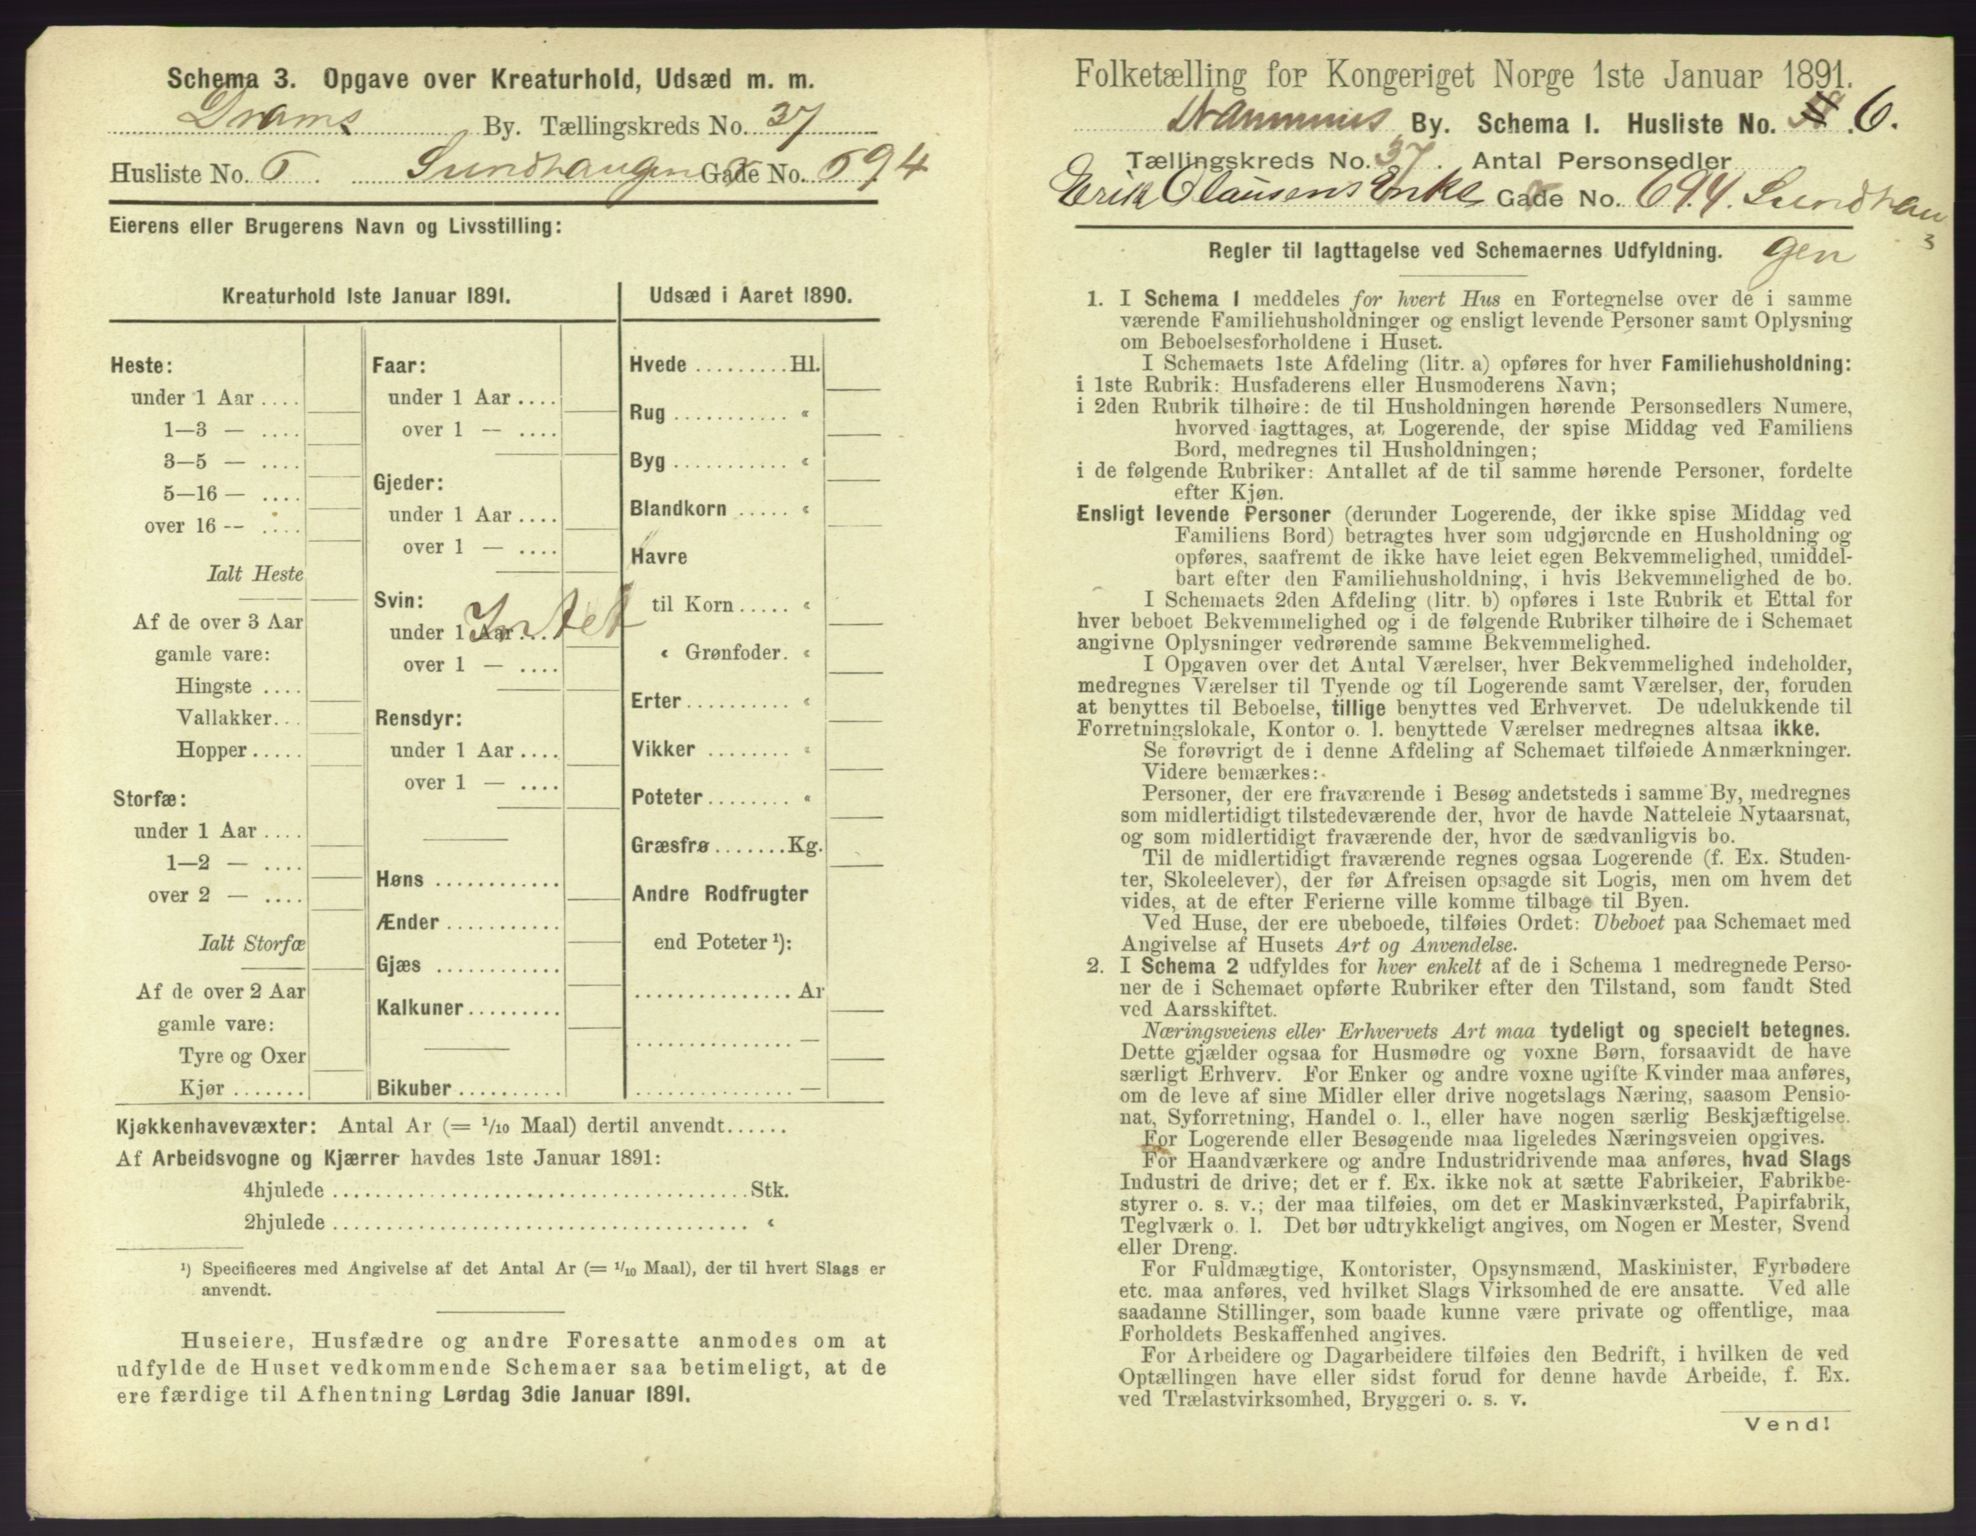 Schema 3. Opgave over Kreaturhold, Udsæd m. m.
Drams By. Tællingskreds No. 37
Husliste No. 6 Sundhaugen Gade No. 694
Eierens eller Brugerens Navn og Livsstilling:
Kreaturhold 1ste Januar 1891.
Heste:
under 1 Aar ....
1—3 — ....
3—5 — ....
5—16 — ....
over 16 -- ....
Ialt Heste
Af de over 3 Aar
gamle vare:
Hingste ....
Vallakker...
Hopper.....
Storfæ:
under 1 Aar ....
1—2 — ....
over 2 — ....
Ialt Storfæ
Af de over 2 Aar
gamle vare:
Tyre og Oxer
Kjør .......
Faar:
under 1 Aar ....
over 1 — ....
Gjeder:
under 1 Aar ....
over 1 — ....
Svin:
under 1 Aar ....
Intet
over 1 — ....
Rensdyr:
under 1 Aar ....
over 1 — ....
Høns ............
Ænder ...........
Gjæs ............
Kalkuner.........
Bikuber ..........
Udsæd i Aaret 1890.
Hvede .........Hl.
Rug ........... «
Byg ........... «
Blandkorn ..... «
Havre
til Korn ..... «
« Grønfoder. «
Erter.......... «
Vikker ........ «
Poteter........ «
Græsfrø.......Kg.
Andre Rodfrugter
end Poteter ¹):
............... Ar
............... —
............... —
Kjøkkenhavevæxter: Antal Ar (= 1/10 Maal) dertil anvendt......
Af Arbeidsvogne og Kjærrer havdes 1ste Januar 1891:
4hjulede ........................................Stk.
2hjulede ........................................ «
¹) Specificeres med Angivelse af det Antal Ar (= 1/10 Maal), der til hvert Slags er
anvendt.
Huseiere, Husfædre og andre Foresatte anmodes om at
udfylde de Huset vedkommende Schemaer saa betimeligt, at de
ere færdige til Afhentning Lørdag 3die Januar 1891.
Folketælling for Kongeriget Norge 1ste Januar 1891.
Drammens By. Schema 1. Husliste No. 6.
Tællingskreds No. 37. Antal Personsedler
Erik Olausens Enke Gade No. 694. Sundhau
gen
Regler til Iagttagelse ved Schemaernes Udfyldning.
1. I Schema 1 meddeles for hvert Hus en Fortegnelse over de i samme
værende Familiehusholdninger og ensligt levende Personer samt Oplysning
om Beboelsesforholdene i Huset.
I Schemaets 1ste Afdeling (litr. a) opføres for hver Familiehusholdning:
i 1ste Rubrik: Husfaderens eller Husmoderens Navn;
i 2den Rubrik tilhøire: de til Husholdningen hørende Personsedlers Numere,
hvorved iagttages, at Logerende, der spise Middag ved Familiens
Bord, medregnes til Husholdningen;
i de følgende Rubriker: Antallet af de til samme hørende Personer, fordelte
efter Kjøn.
Ensligt levende Personer (derunder Logerende, der ikke spise Middag ved
Familiens Bord) betragtes hver som udgjørende en Husholdning og
opføres, saafremt de ikke have leiet egen Bekvemmelighed, umiddel-
bart efter den Familiehusholdning, i hvis Bekvemmelighed de bo.
I Schemaets 2den Afdeling (litr. b) opføres i 1ste Rubrik et Ettal for
hver beboet Bekvemmelighed og i de følgende Rubriker tilhøire de i Schemaet
angivne Oplysninger vedrørende samme Bekvemmelighed.
I Opgaven over det Antal Værelser, hver Bekvemmelighed indeholder,
medregnes Værelser til Tyende og til Logerende samt Værelser, der, foruden
at benyttes til Beboelse, tillige benyttes ved Erhvervet. De udelukkende til
Forretningslokale, Kontor o. l. benyttede Værelser medregnes altsaa ikke.
Se forøvrigt de i denne Afdeling af Schemaet tilføiede Anmærkninger.
Videre bemærkes:
Personer, der ere fraværende i Besøg andetsteds i samme By, medregnes
som midlertidigt tilstedeværende der, hvor de havde Natteleie Nytaarsnat,
og som midlertidigt fraværende der, hvor de sædvanligvis bo.
Til de midlertidigt fraværende regnes ogsaa Logerende (f. Ex. Studen-
ter, Skoleelever), der før Afreisen opsagde sit Logis, men om hvem det
vides, at de efter Ferierne ville komme tilbage til Byen.
Ved Huse, der ere ubeboede, tilføies Ordet: Ubeboet paa Schemaet med
Angivelse af Husets Art og Anvendelse.
2. I Schema 2 udfyldes for hver enkelt af de i Schema 1 medregnede Perso-
ner de i Schemaet opførte Rubriker efter den Tilstand, som fandt Sted
ved Aarsskiftet.
Næringsveiens eller Erhvervets Art maa tydeligt og specielt betegnes.
Dette gjælder ogsaa for Husmødre og voxne Børn, forsaavidt de have
særligt Erhverv. For Enker og andre voxne ugifte Kvinder maa anføres,
om de leve af sine Midler eller drive nogetslags Næring, saasom Pensio-
nat, Syforretning, Handel o. l., eller have nogen særlig Beskjæftigelse.
For Logerende eller Besøgende maa ligeledes Næringsveien opgives.
For Haandværkere og andre Industridrivende maa anføres, hvad Slags
Industri de drive; det er f. Ex. ikke nok at sætte Fabrikeier, Fabrikbe-
styrer o. s. v.; der maa tilføies, om det er Maskinværksted, Papirfabrik,
Teglværk o. l. Det bør udtrykkeligt angives, om Nogen er Mester, Svend
eller Dreng.
For Fuldmægtige, Kontorister, Opsynsmænd, Maskinister, Fyrbødere
etc. maa anføres, ved hvilket Slags Virksomhed de ere ansatte. Ved alle
saadanne Stillinger, som baade kunne være private og offentlige, maa
Forholdets Beskaffenhed angives.
For Arbeidere og Dagarbeidere tilføies den Bedrift, i hvilken de ved
Optællingen have eller sidst forud for denne havde Arbeide, f. Ex.
ved Trælastvirksomhed, Bryggeri o. s. v.
Vend!